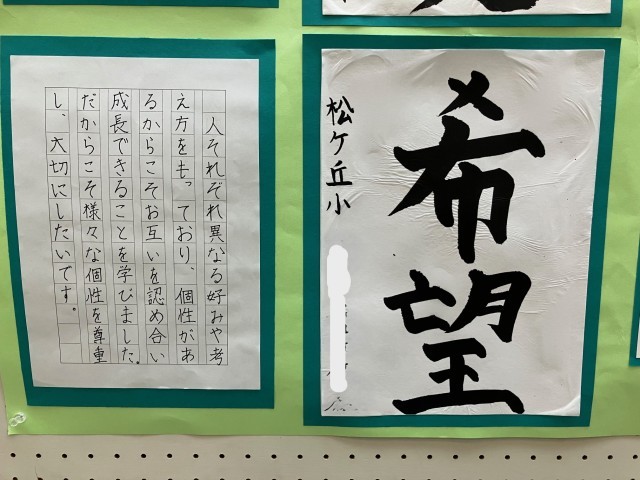 希望
松ケ丘小
人それぞれ異なる好みや考
え方をもっており、個性があ
るからこそお互いを認め合い
成長できることを学びました。
だからこそ様々な個性を尊重
し、大切にしたいです。